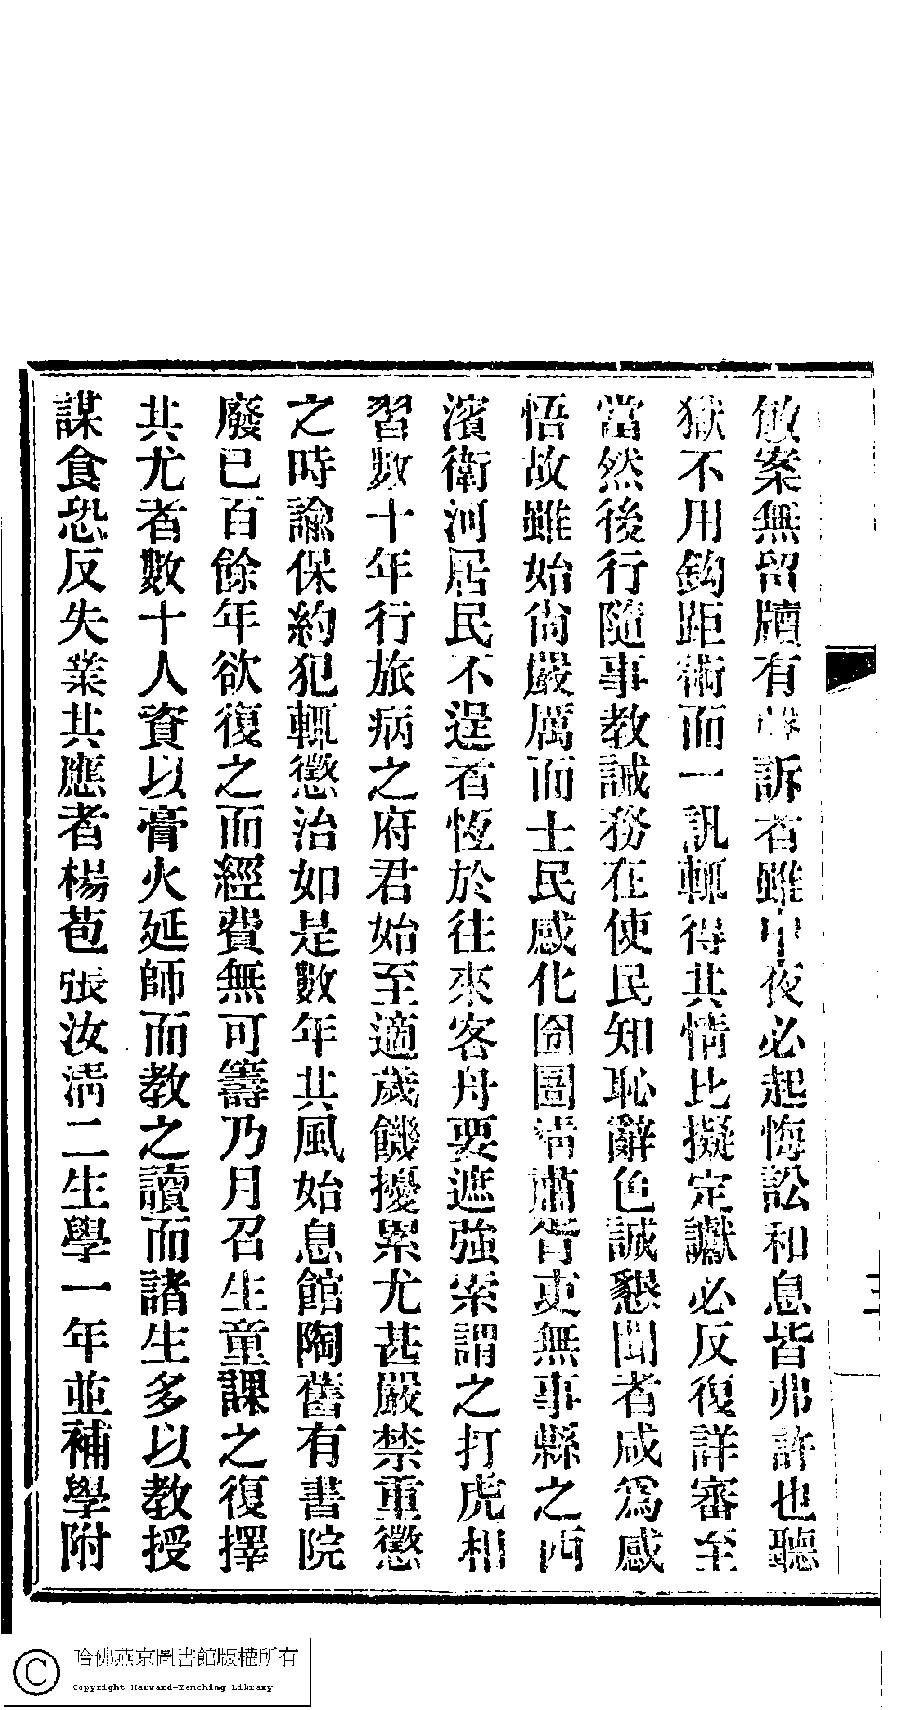 敏案無留牘有訴者雖中夜必起悔訟和息皆弗許也聽
獄不用鈎距術而一訊輒得其情比擬定讞必反復詳審至
當然後行隨事教誡務在使民知恥辭色誠懇聞者咸爲感
悟故雖始尙嚴厲而士民感化囹圄淸肅胥吏無事縣之西
濱衛河居民不逞者恆於往來客舟要遮強索謂之打虎相
習數十年行旅病之府君始至適歲饑擾累尤甚嚴禁重懲
之時諭保約犯輒懲治如是數年其風始息館陶舊有書院
廢已百餘年欲復之而經費無可籌乃月召生童課之復擇
其尤者數十人資以膏火延師而教之讀而諸生多以教授
謀食恐反失業其應者楊苞張汝淸二生學一年並補學附
三
哈佛燕京圖書館版權所有
Copyright Harvard-Yenching Library